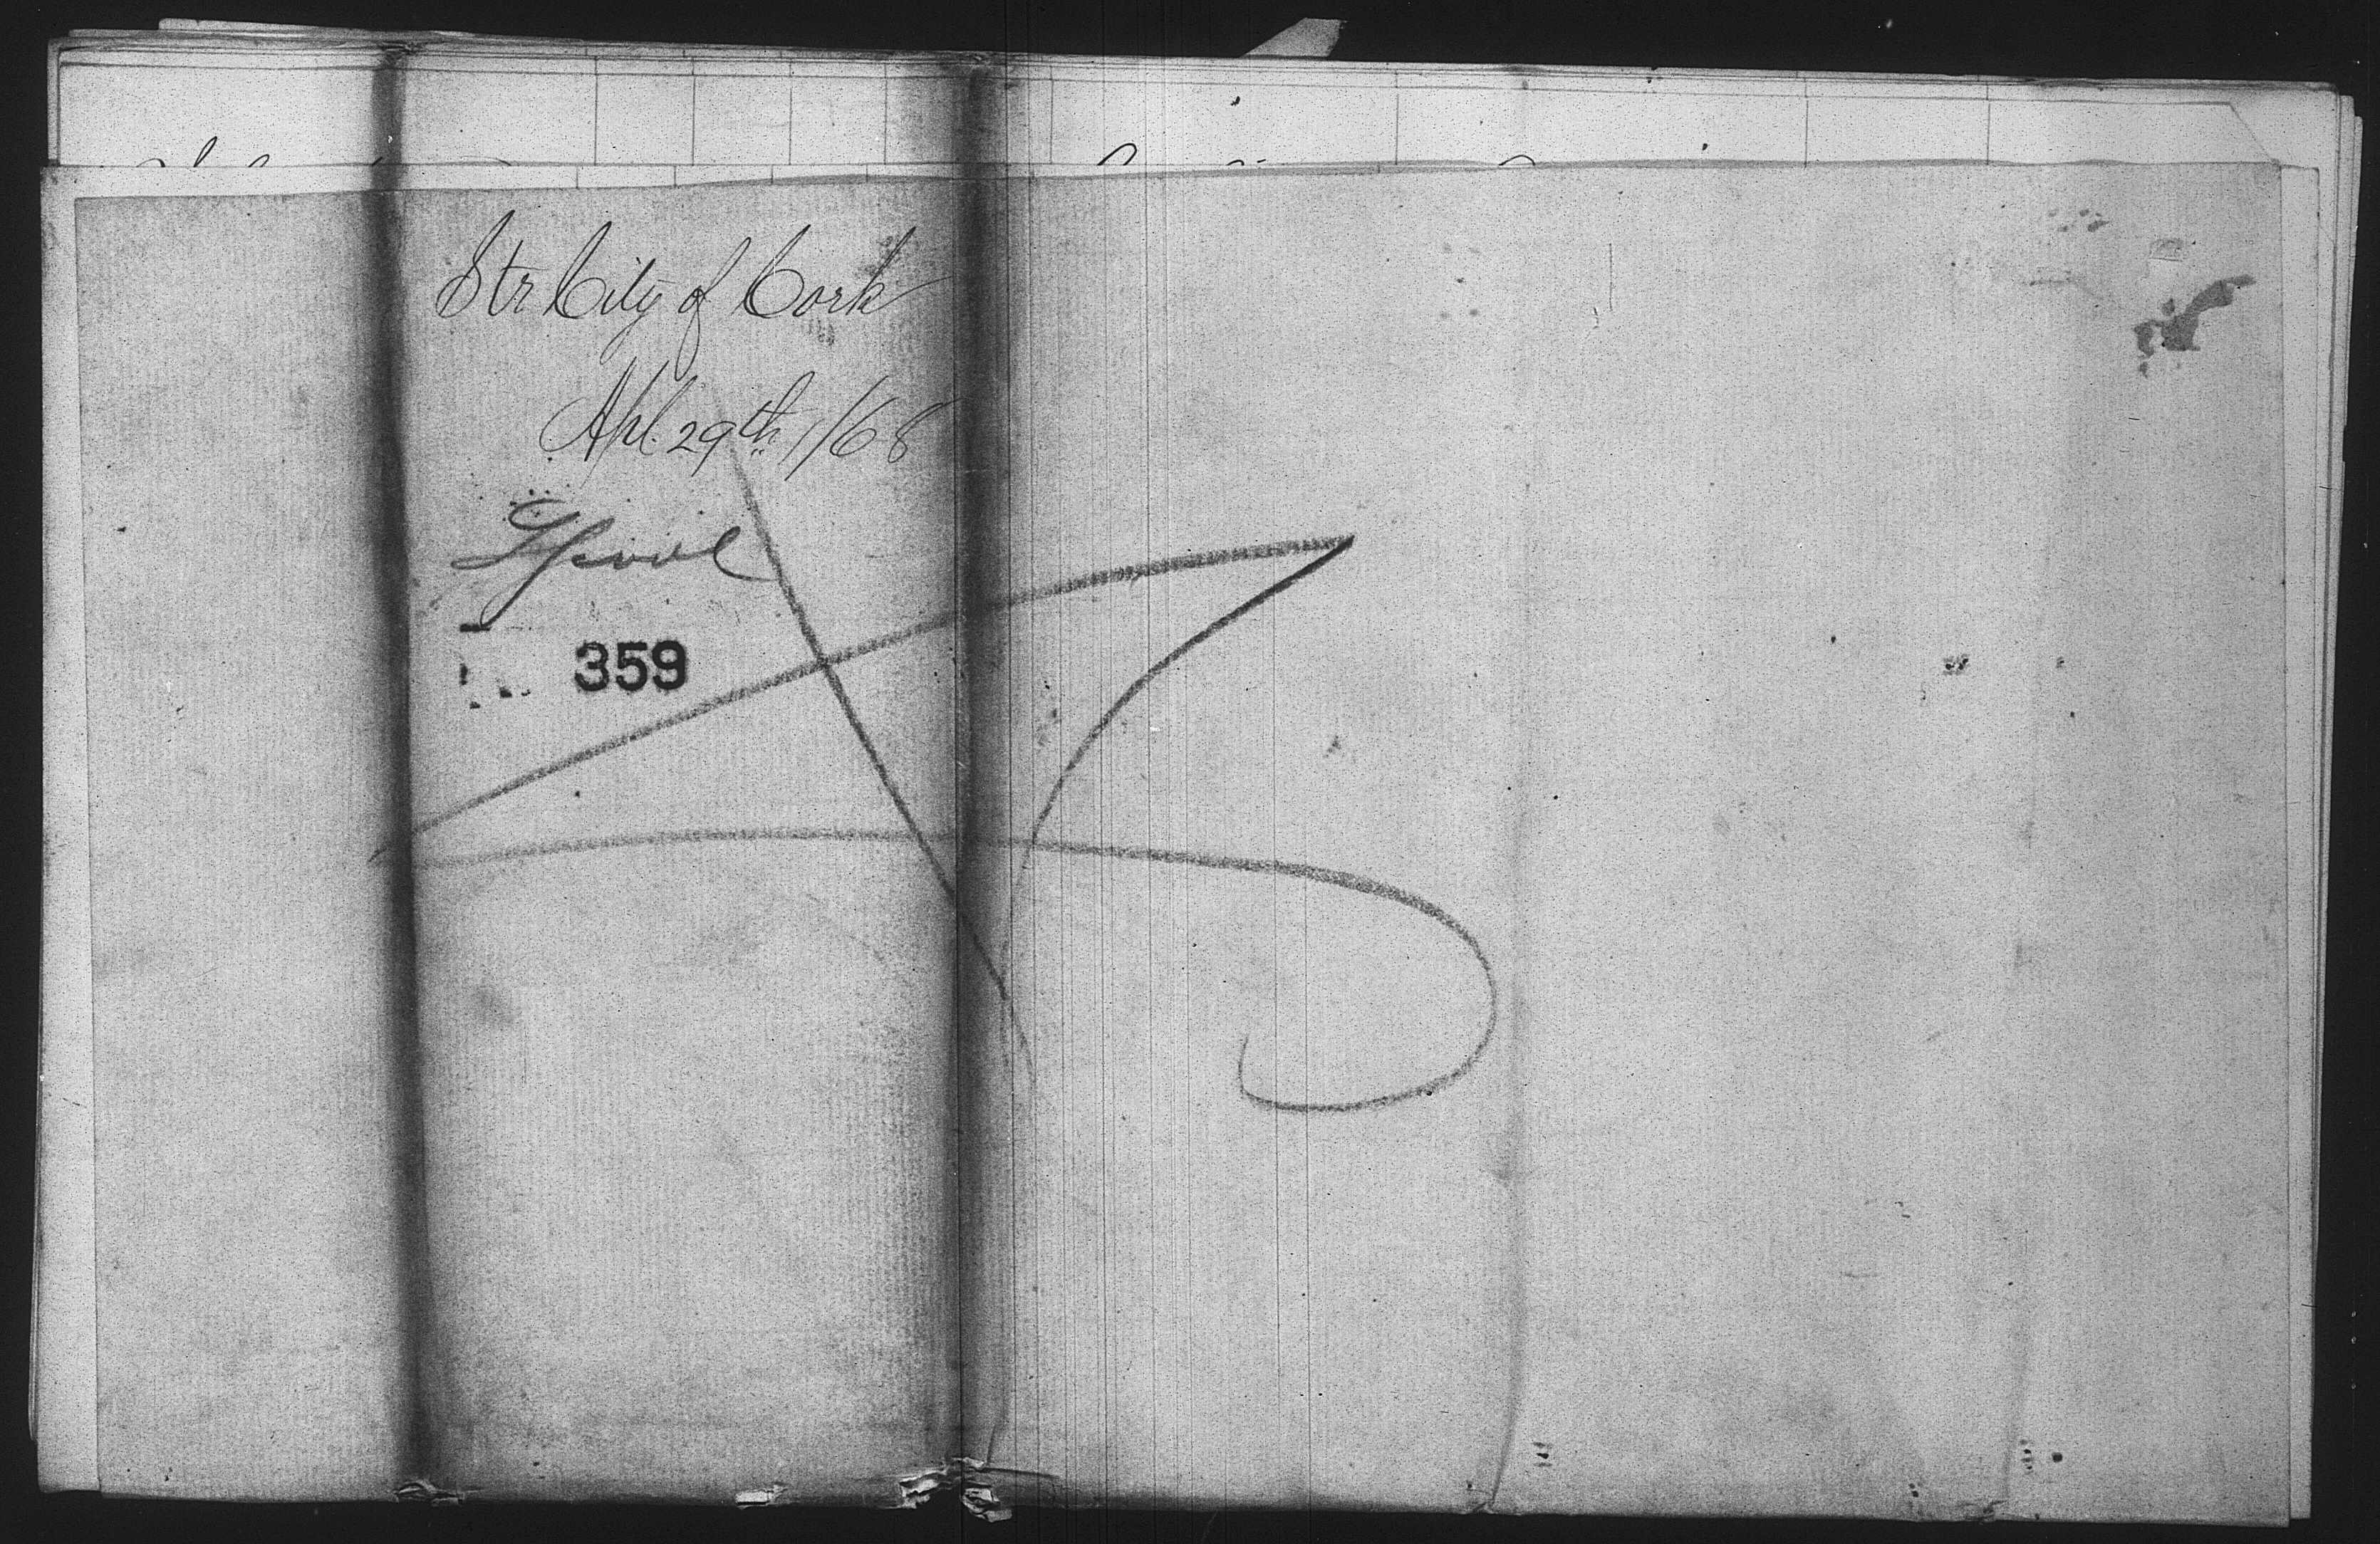 Str City of Cork
Apl. 29th 1/68
359